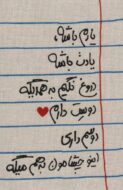 یارم باشه،
یادت باشه
دروغ نگیم به همدیگه
دوست دارم
دوسم داری
اینو چشمامون به هم میگه